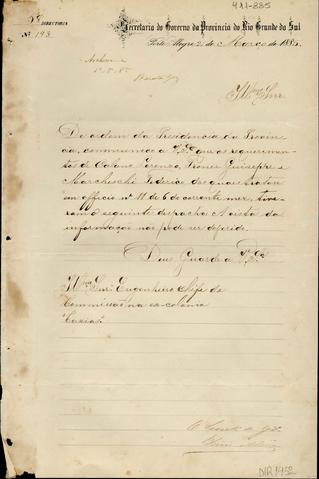 411-885
5ª
DIRECTORIA
Nº 193
Secretaria do Governo da Provincia do Rio Grande do Sul
Porto Alegre, 2 de Março de 1885.
Archive-se
Illmo Snr.
De ordem da Presidencia da Provin
cia, communico a V. Sª que os requerimen
tos de Colane Lorenzo, Giuseppe e
Marcheschi Federico, dos quaes tratava
em officio nº 11 de 6 do corrente mez, tive
ram o seguinte despacho: Á vista da
informação não póde ser deferido.
Deus Guarde a V. Sª
Illmo Snr. Engenheiro Chefe da
Commissão na ex-colonia
Caxias.
DIR 1952